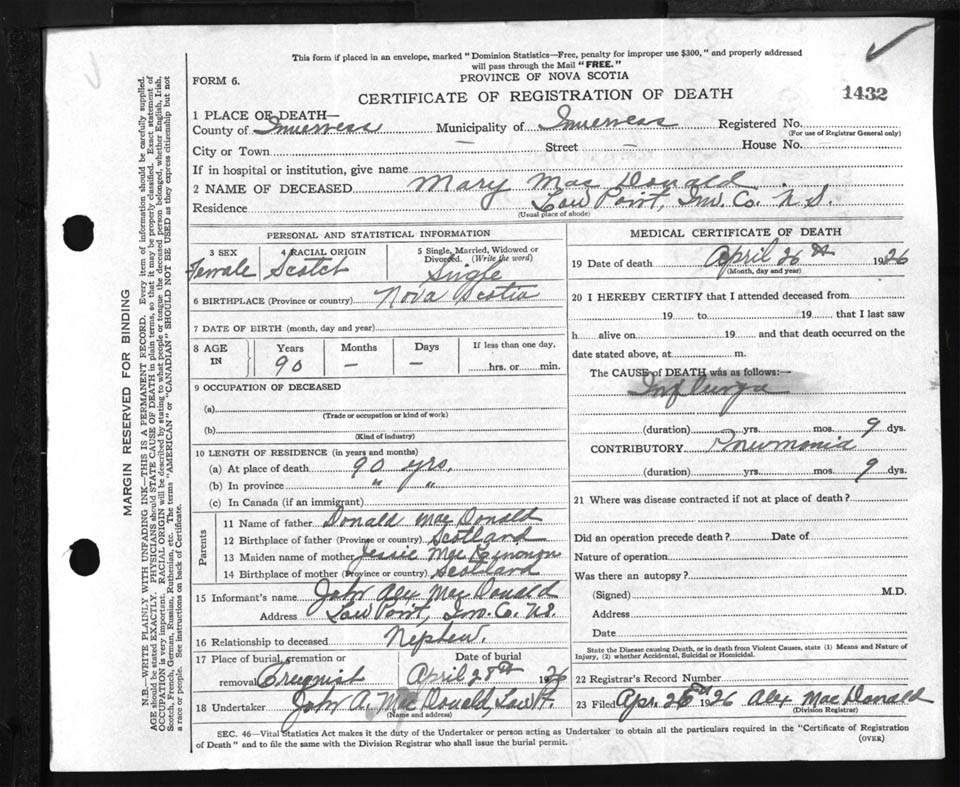 This form if placed in an envelope, marked "Dominion Statistics—Free, penalty for improper use $300," and properly addressed
will pass through the Mail "FREE."
PROVINCE OF NOVA SCOTIA
FORM 6.
CERTIFICATE OF REGISTRATION OF DEATH
1432
1 PLACE OF DEATH—
County of Inverness Municipality of Inverness Registered No.
(For use of Registrar General only)
City or Town — Street — House No.
If in hospital or institution, give name
2 NAME OF DECEASED Mary Mac Donald
Residence Low Point, Inv. Co. N.S.
(Usual place of abode)
PERSONAL AND STATISTICAL INFORMATION
3 SEX 4 RACIAL ORIGIN 5 Single, Married, Widowed or
Divorced. (Write the word)
Female Scotch Single
6 BIRTHPLACE (Province or country) Nova Scotia
7 DATE OF BIRTH (month, day and year)
8 AGE IN Years Months Days If less than one day,
90 — — hrs. or min.
9 OCCUPATION OF DECEASED
(a)
(Trade or occupation or kind of work)
(b)
(Kind of industry)
10 LENGTH OF RESIDENCE (in years and months)
(a) At place of death 90 yrs.
(b) In province " "
(c) In Canada (if an immigrant)
Parents
11 Name of father Donald Mac Donald
12 Birthplace of father (Province or country) Scotland
13 Maiden name of mother Jessie Mac
14 Birthplace of mother (Province or country) Scotland
15 Informant's name John Alex Mac Donald
Address Low Point, Inv. Co. N.S.
16 Relationship to deceased Nephew.
17 Place of burial, cremation or Date of burial
removal Creignish April 28th 1926
18 Undertaker John A. Mac Donald, Low Pt.
(Name and address)
MEDICAL CERTIFICATE OF DEATH
19 Date of death April 26th 1926
(Month, day and year)
20 I HEREBY CERTIFY that I attended deceased from
19 to 19 that I last saw
h alive on 19 and that death occurred on the
date stated above, at m.
The CAUSE of DEATH was as follows:—
Influenza
(duration) yrs. mos. 9 dys.
CONTRIBUTORY Pneumonia
(duration) yrs. mos. 9 dys.
21 Where was disease contracted if not at place of death?
Did an operation precede death? Date of
Nature of operation
Was there an autopsy?
(Signed) M.D.
Address
Date
State the Disease causing Death, or in death from Violent Causes, state (1) Means and Nature of
Injury, (2) whether Accidental, Suicidal or Homicidal.
22 Registrar's Record Number
23 Filed Apr. 1926 Alex Mac Donald
(Division Registrar)
SEC. 46—Vital Statistics Act makes it the duty of the Undertaker or person acting as Undertaker to obtain all the particulars required in the "Certificate of Registration
of Death" and to file the same with the Division Registrar who shall issue the burial permit.
(OVER)
MARGIN RESERVED FOR BINDING
N.B.—WRITE PLAINLY WITH UNFADING INK—THIS IS A PERMANENT RECORD. Every item of information should be carefully supplied.
AGE should be stated EXACTLY. PHYSICIANS should STATE CAUSE OF DEATH in plain terms, so that it may be properly classified. Exact statement of
OCCUPATION is very important. RACIAL ORIGIN will be described by stating to what people or tongue the deceased person belonged, whether English, Irish,
Scotch, French, German, Russian, Ruthenian, etc. The terms "AMERICAN" or "CANADIAN" SHOULD NOT BE USED as they express citizenship but not
a race or people. See instructions on back of Certificate.